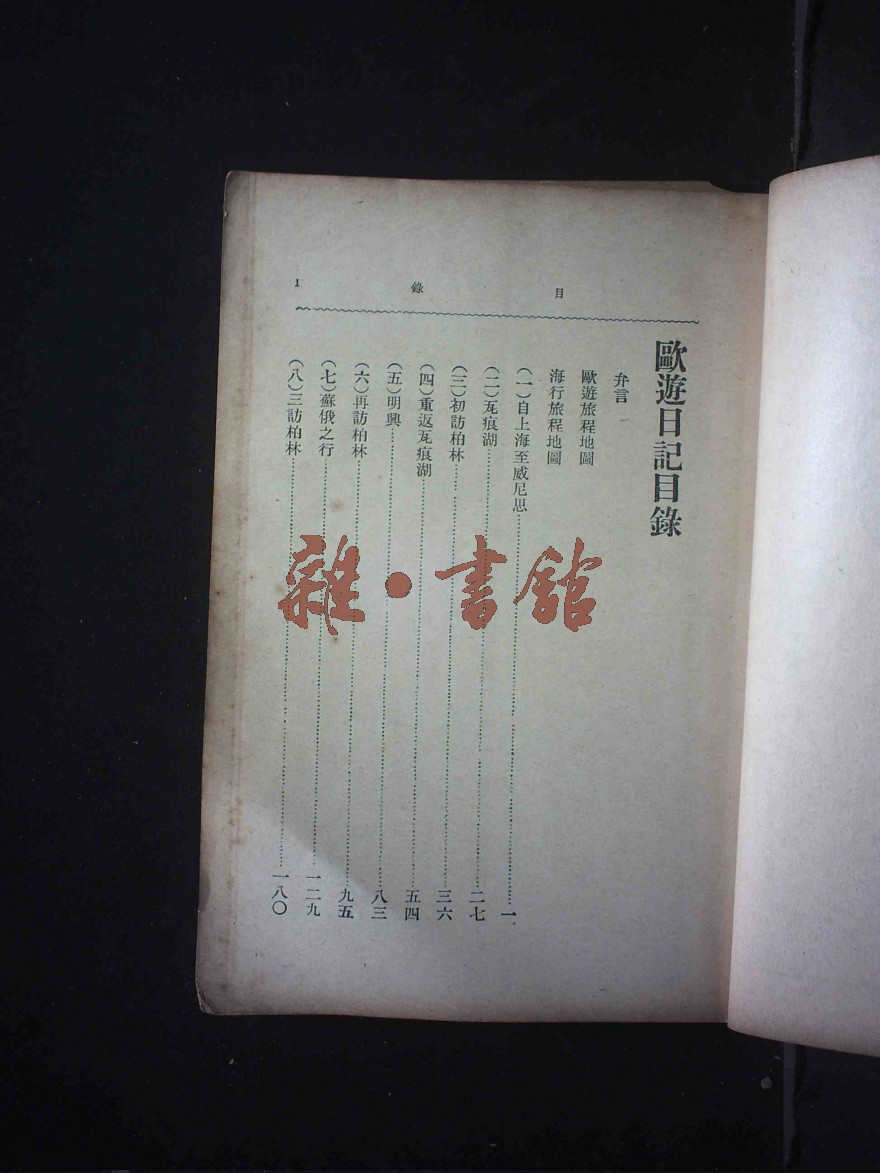 目錄 1
歐遊日記目錄
弁言
歐遊旅程地圖
海行旅程地圖
(一)自上海至威尼思……一
(二)瓦痕湖……二七
(三)初訪柏林……三六
(四)重返瓦痕湖……五四
(五)明興……八三
(六)再訪柏林……九五
(七)蘇俄之行……一二九
(八)三訪柏林……一八〇
雜·書館